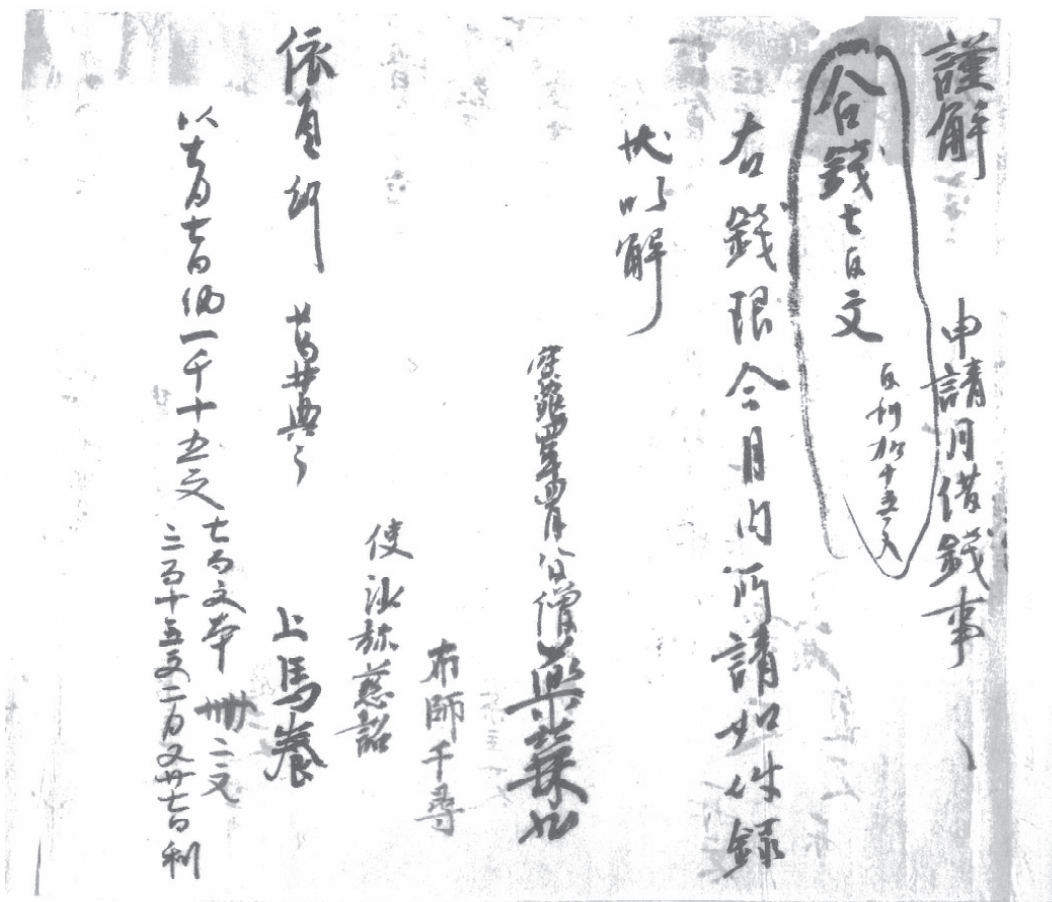 謹解　申請月借錢事
合錢七百文　百利十五文
右錢限今月内所請如件録
状以解
寶龜四年四月八日僧
布師千尋
使沙弥慈詔
依員行　葛井典　上馬養
以七月七日納一千十五文　七百文本　卌二文
三百十五文二月又廿七日利